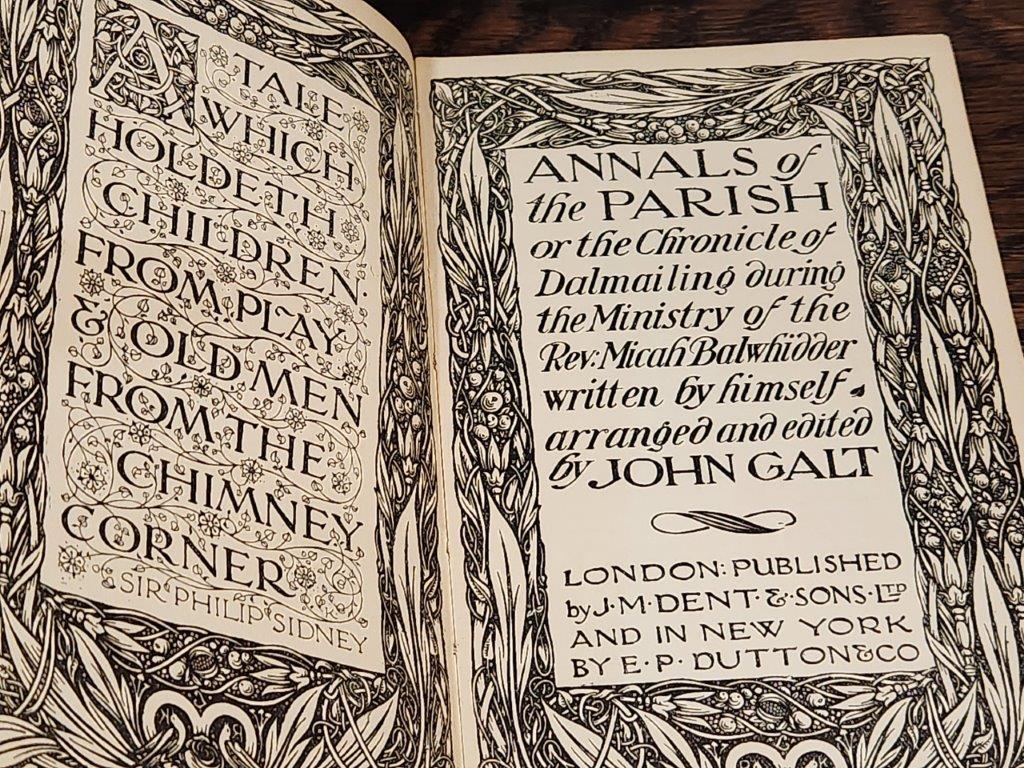 A TALE
WHICH
HOLDETH
CHILDREN
FROM PLAY
& OLD MEN
FROM THE
CHIMNEY
CORNER
SIR PHILIP SIDNEY
ANNALS of
the PARISH
or the Chronicle of
Dalmailing during
the Ministry of the
Rev: Micah Balwhidder
written by himself.
arranged and edited
by JOHN GALT
LONDON: PUBLISHED
by J·M·DENT·&·SONS·LTD
AND IN NEW YORK
BY E·P·DUTTON & CO